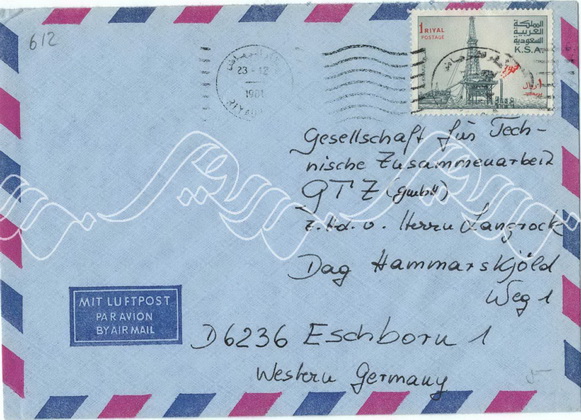 612
1 RIYAL
POSTAGE
المملكة
العربية
السعودية
K.S.A.
23-12
1981
Gesellschaft für Tech-
nische Zusammenarbeit
GTZ (GmbH)
z. Hd. v. Herrn Langrock
Dag Hammarskjöld
Weg 1
MIT LUFTPOST
PAR AVION
BY AIR MAIL
D6236 Eschborn 1
Western Germany